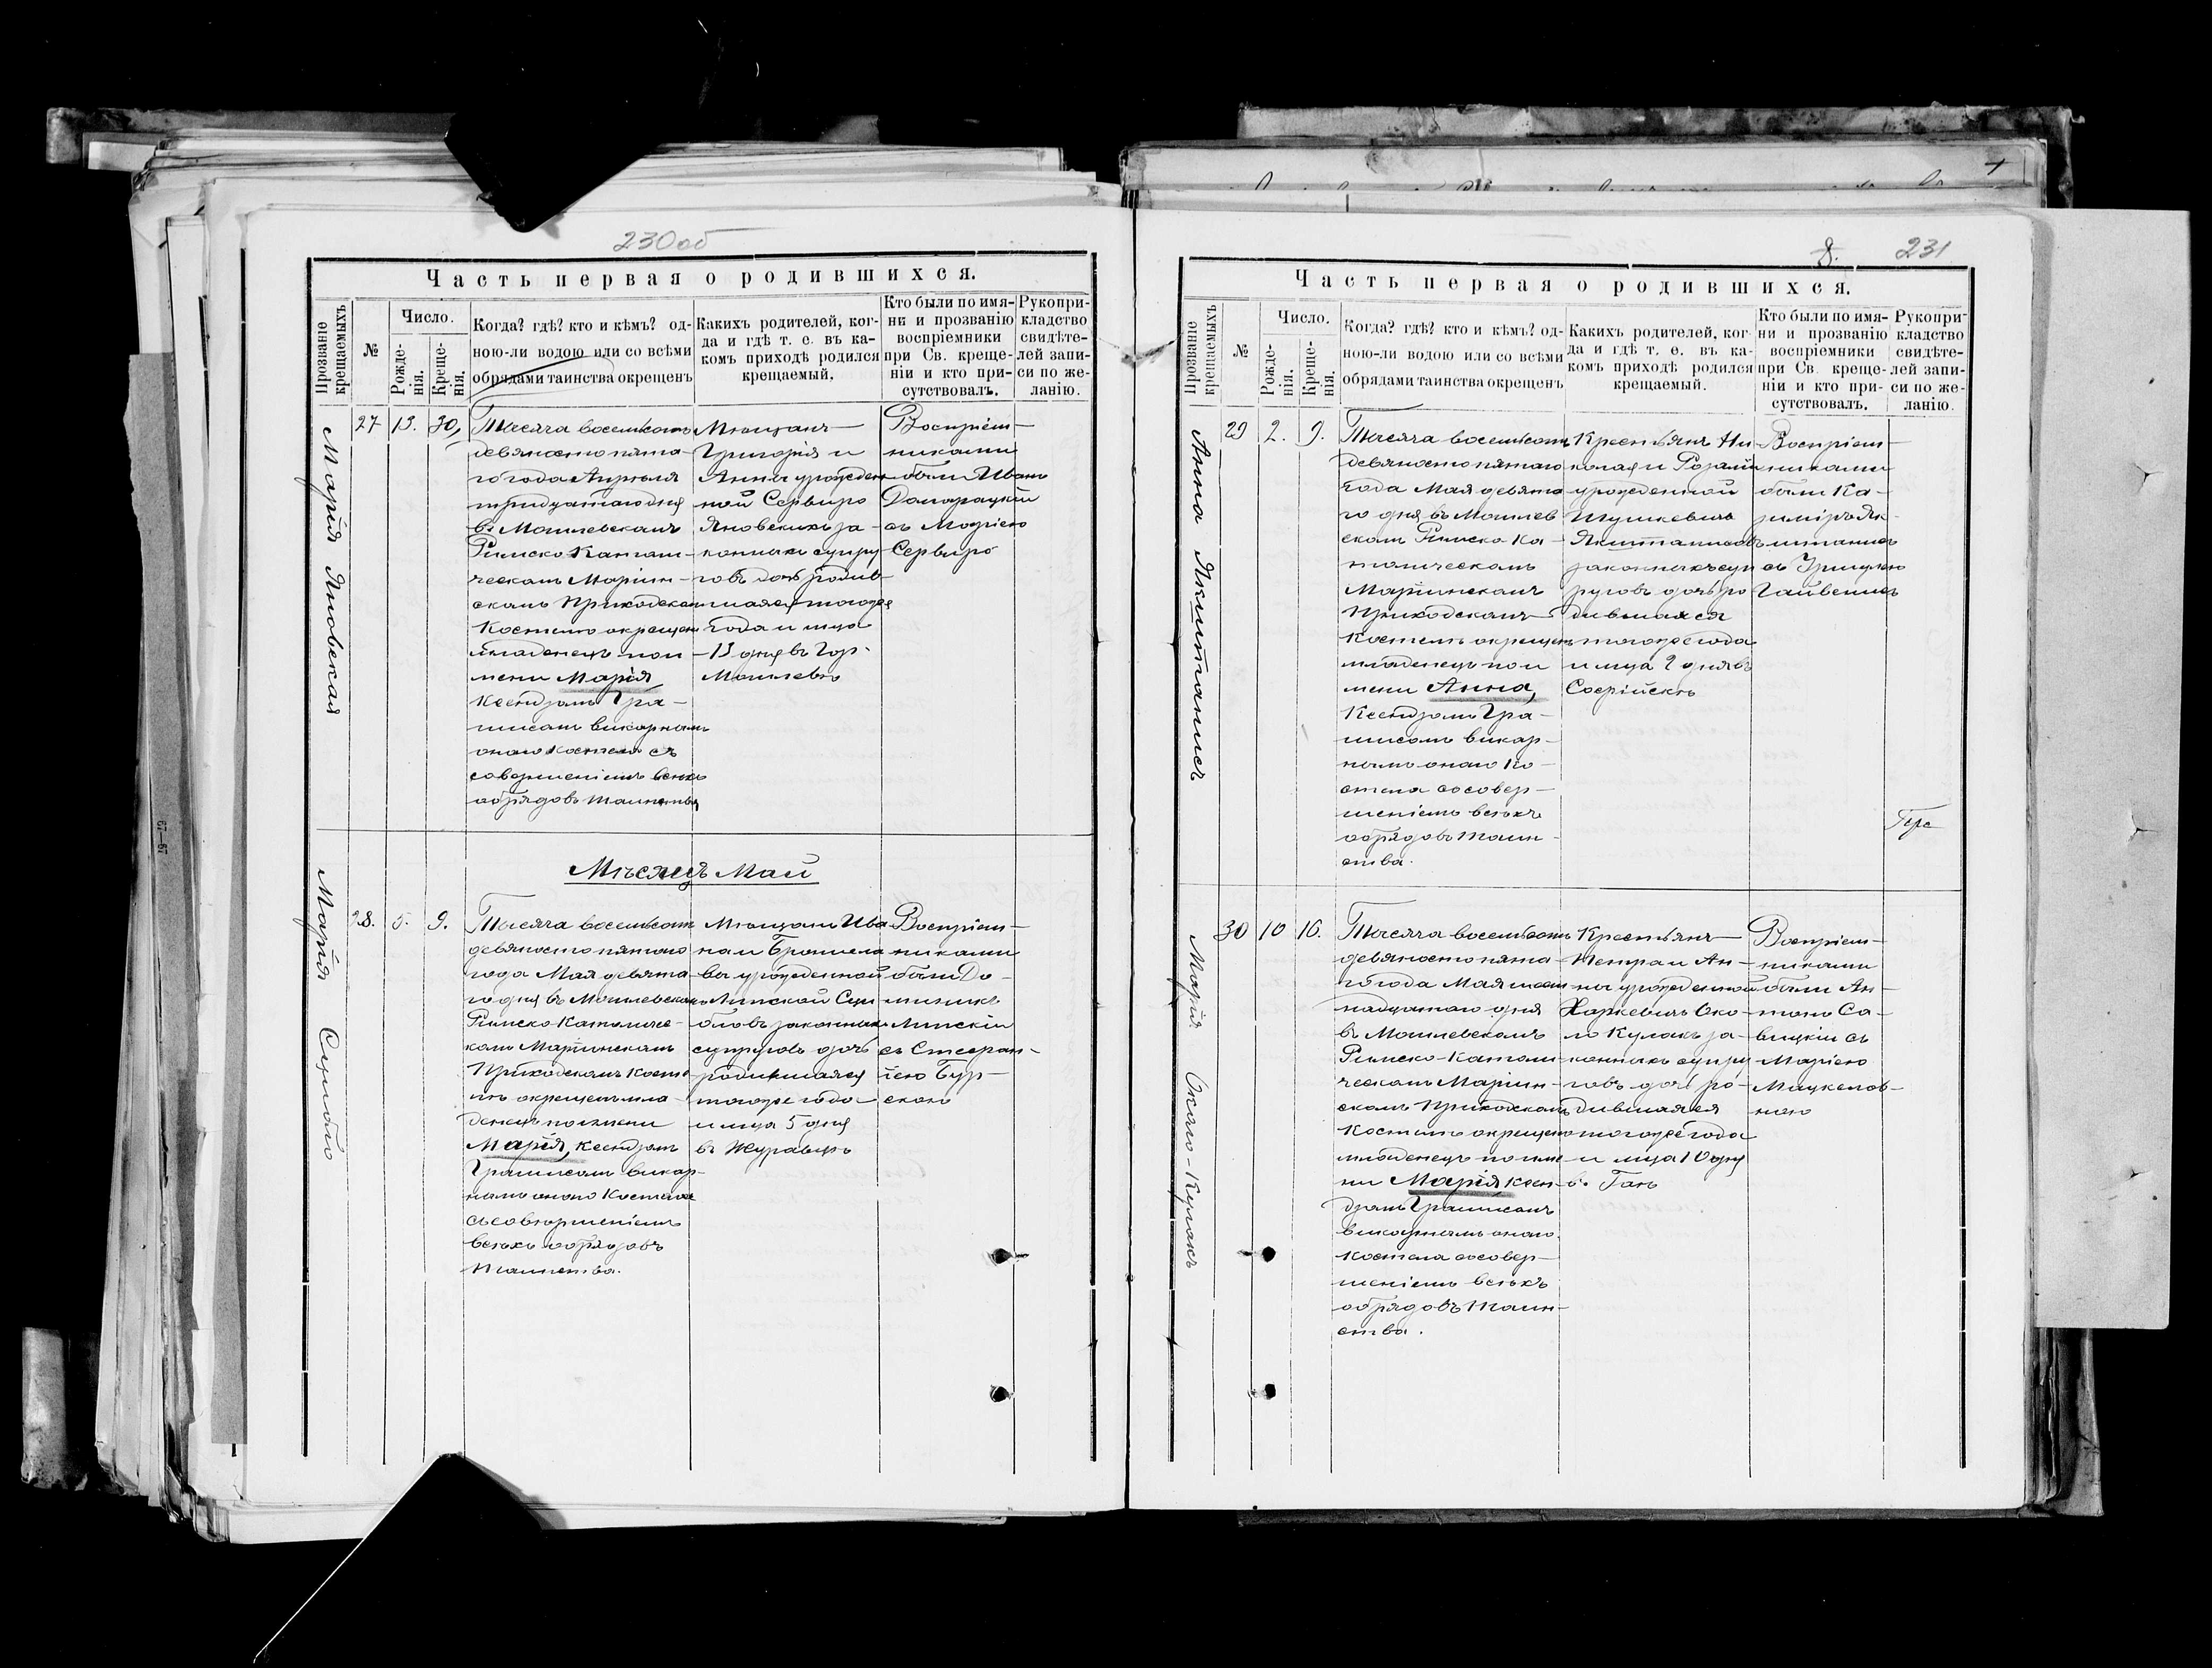 230 об
Часть первая о родившихся.
Прозваніе крещаемыхъ
№
Число.
Рожденія.
Крещенія.
Когда? гдѣ? кто и кѣмъ? од-
ною-ли водою или со всѣми
обрядами таинства окрещенъ
Какихъ родителей, ког-
да и гдѣ т. е. въ ка-
комъ приходѣ родился
крещаемый.
Кто были по имя-
ни и прозванію
воспріемники
при Св. креще-
ніи и кто при-
сутствовалъ.
Рукопри-
кладство
свидѣте-
лей запи-
си по же-
ланію.
Марія Яновская
27
13.
30,
Тысяча восемьсотъ
девяносто пята-
го года Апрѣля
тридцатаго дня
въ Могилевскомъ
Римско Католи-
ческомъ Маріин-
скомъ Приходскомъ
Костелѣ окрещенъ
младенецъ по и
мени Марія
Ксендзомъ Гра-
писомъ викарнымъ
онаго Костела съ
совершеніемъ всѣхъ
обрядовъ таинства
Мѣщанъ
Григорія и
Анны урожден
ной Сервиро
Яновскихъ за-
конныхъ супру
говъ дочь родив-
шаяся того же
года и мца
13 дня въ Гор.
Могилевѣ
Воспріем-
никами
были Иванъ
Домарацкій
съ Маріею
Сервиро
Мѣсяцъ Май
Марія Сцибло
28.
5.
9.
Тысяча восемьсотъ
девяносто пятаго
года Мая девята
го дня въ Могилевскомъ
Римско Католиче-
комъ Маріинскомъ
Приходскомъ Косте-
лѣ окрещенъ мла-
денецъ по имени
Марія, Ксендзомъ
Граписомъ викар-
нымъ онаго Костела
съ совершеніемъ
всѣхъ обрядовъ
таинства.
Мѣщанъ Ива
на и Брониcла
вы урожденной
Липской Сци
бловъ законныхъ
супруговъ дочь
родившаяся
того же года
и мца 5 дня
въ Журавцѣ
Воспріем-
никами
были До-
миникъ
Липскій
съ Стефан-
іею Бур-
скою
8.
231
Часть первая о родившихся.
Прозваніе крещаемыхъ
№
Число.
Рожденія.
Крещенія.
Когда? гдѣ? кто и кѣмъ? од-
ною-ли водою или со всѣми
обрядами таинства окрещенъ
Какихъ родителей, ког-
да и гдѣ т. е. въ ка-
комъ приходѣ родился
крещаемый.
Кто были по имя-
ни и прозванію
воспріемники
при Св. креще-
ніи и кто при-
сутствовалъ.
Рукопри-
кладство
свидѣте-
лей запи-
си по же-
ланію.
Анна Якштанисъ
29
2.
9.
Тысяча восемьсотъ
девяносто пятаго
года Мая девята
го дня въ Могилев
скомъ Римско Ка-
толическомъ
Маріинскомъ
Приходскомъ
Костелѣ окрещенъ
младенецъ по и
мени Анна,
Ксендзомъ Гра-
писомъ викар-
нымъ онаго Ко-
стела со совер-
шеніемъ всѣхъ
обрядовъ таин-
ства.
Крестьянъ Ни
колая и Розаліи
урожденной
Шушкевичъ
Якштанисовъ
законныхъ суп
руговъ дочь ро
дившаяся
того же года
и мца 2 дня въ
Софійскѣ
Воспріем-
никами
были Ка-
зиміръ Як
штанисъ
съ Уршулею
Гайвенисъ
Пре
Марія Около-Кулакъ
30
10
16.
Тысяча восемьсотъ
девяносто пята-
го года Мая шест
надцатаго дня
въ Могилевскомъ
Римско-Католи-
ческомъ Маріин-
скомъ Приходскомъ
Костелѣ окрещенъ
младенецъ по име-
ни Марія Ксен-
дзомъ Граписомъ
викарнымъ онаго
Костела со совер-
шеніемъ всѣхъ
обрядовъ таин-
ства.
Крестьянъ
Петра и Ан-
ны урожденной
Харкевичъ Око-
ло Кулакъ за-
конныхъ супру
говъ дочь ро-
дившаяся
того же года
и мца 10 дня
Воспріем-
никами
были Ан-
тонъ Са-
вицкій съ
Маріею
Мацкелов-
ною